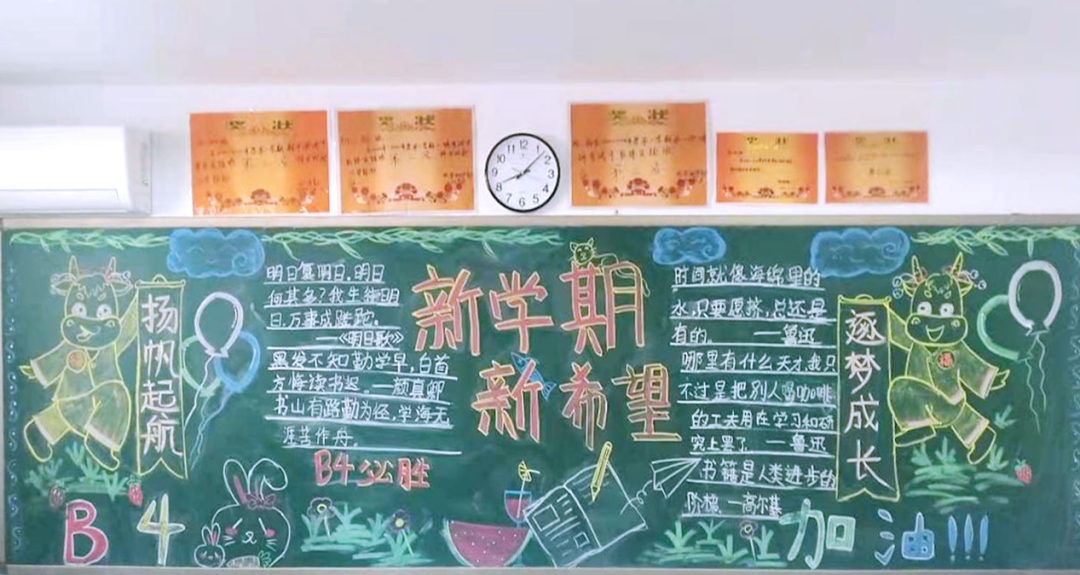 奖状
奖状
奖状
奖状
奖状
12
1
2
3
4
5
6
7
8
9
10
11
扬帆起航
明日复明日，明日
何其多？我生待明
日，万事成蹉跎。
——《明日歌》
黑发不知勤学早，白首
方悔读书迟。——颜真卿
书山有路勤为径，学海无
涯苦作舟。
B4必胜
新学期
新希望
时间就像海绵里的
水，只要愿挤，总还是
有的。 ——鲁迅
哪里有什么天才，我只
不过是把别人喝咖啡
的工夫用在学习和研
究上罢了 ——鲁迅
书籍是人类进步的
阶梯 —高尔基
逐梦成长
B4
加油!!!